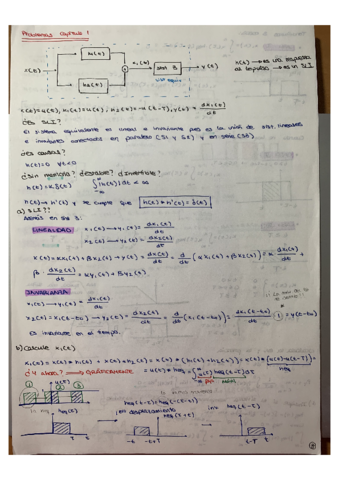 Problemas Capítulo 1
h1(t)
x(t)
x1(t)
sist 3
y(t)
h2(t)
sist equiv
h(t) → es una respuesta
al impulso → es un SLI
x(t)=u(t), h1(t)=u(t), h2(t)=-u(t-T), y(t)= dx1(t)/dt
¿es SLI?
El sistema equivalente es lineal e invariante pues es la unión de sist. lineales
e invariantes conectados en paralelo (S1 y S2) y en serie (S3).
¿es causal?
h(t)=0 ∀t<0
¿sin memoria? ¿estable? ¿invertible?
h(t)=Kδ(t) ∫|h(t)|dt < ∞
h(t) → h'(t) y se cumple que h(t)*h'(t)=δ(t)
a) SLI??
Análisis en sist 3:
LINEALIDAD
x1(t) → y1(t) = dx1(t)/dt
x2(t) → y2(t) = dx2(t)/dt
x(t)=αx1(t)+βx2(t) → y(t)= dx(t)/dt = d/dt (αx1(t)+βx2(t)) = α dx1(t)/dt +
β dx2(t)/dt = αy1(t)+βy2(t)
INVARIANZA
x1(t) → y1(t) = dx1(t)/dt
x2(t)=x1(t-t0) → y2(t) = dx2(t)/dt = d/dt (x1(t-t0)) = dx1(t-t0)/dt = y(t-t0)
Es invariante en el tiempo.
b) Calcule x1(t)
x1(t)=x(t)*h1(t)+x(t)*h2(t)=x(t)*(h1(t)+h2(t))=x(t)*[u(t)-u(t-T)]=
heq
¿Y ahora? → GRÁFICAMENTE = u(t)*heq =
u(τ)
heq(τ)
T
heq(t-τ)=heq(-(τ-t))
inv + desplazamiento
heq(τ+t)
-t
-t+T
inv
t-T
t